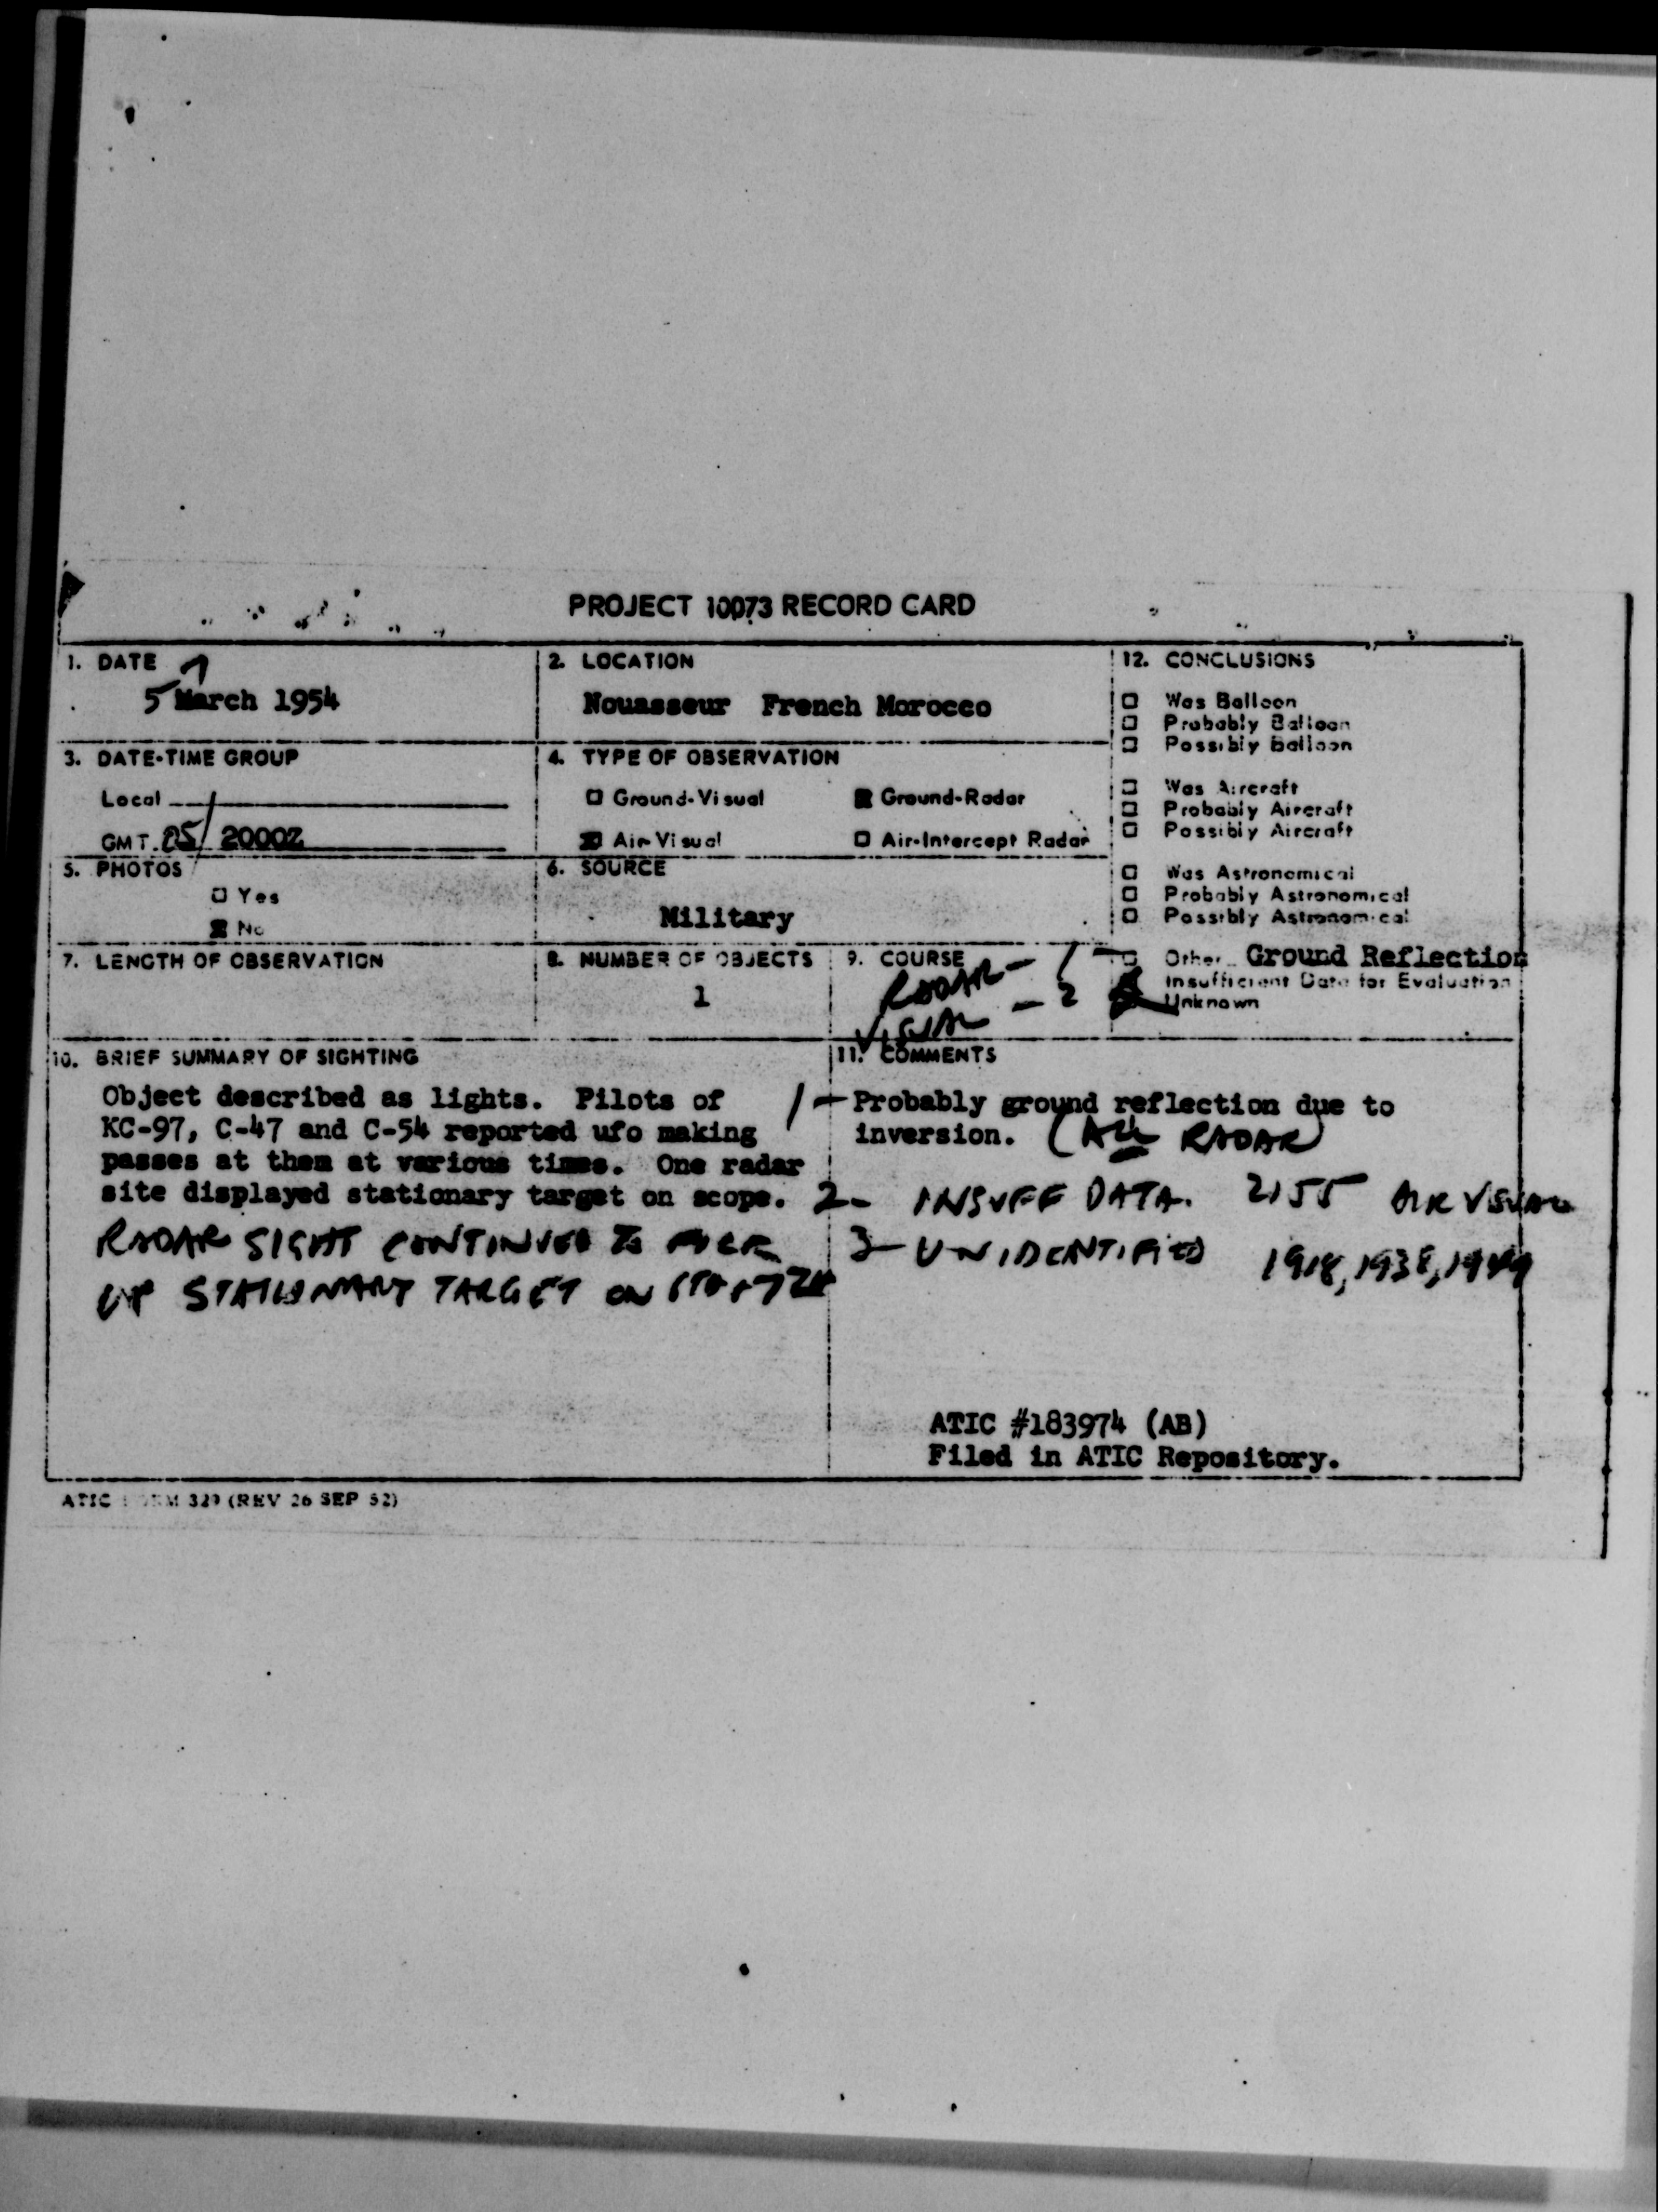 PROJECT 10073 RECORD CARD
1. DATE
5 March 1954
2. LOCATION
Nouasseur French Morocco
12. CONCLUSIONS
☐ Was Balloon
☐ Probably Balloon
☐ Possibly Balloon
☐ Was Aircraft
☐ Probably Aircraft
☐ Possibly Aircraft
☐ Was Astronomical
☐ Probably Astronomical
☐ Possibly Astronomical
☐ Other Ground Reflection
Insufficient Data for Evaluation
Unknown
3. DATE-TIME GROUP
Local
GMT 05/2000Z
4. TYPE OF OBSERVATION
☐ Ground-Visual ☒ Ground-Radar
☒ Air-Visual ☐ Air-Intercept Radar
5. PHOTOS
☐ Yes
☒ No
6. SOURCE
Military
7. LENGTH OF OBSERVATION
8. NUMBER OF OBJECTS
1
9. COURSE
RADAR - 1
VISUAL - 2
10. BRIEF SUMMARY OF SIGHTING
Object described as lights. Pilots of
KC-97, C-47 and C-54 reported ufo making
passes at them at various times. One radar
site displayed stationary target on scope.
RADAR SIGHT CONTINUED TO PICK
UP STATIONARY TARGET ON
11. COMMENTS
1- Probably ground reflection due to
inversion. (ALL RADAR)
2- INSUFF DATA. 2155 AIR VISUAL
3- UNIDENTIFIED 1918, 1938, 1949
ATIC #183974 (AB)
Filed in ATIC Repository.
ATIC FORM 329 (REV 26 SEP 52)